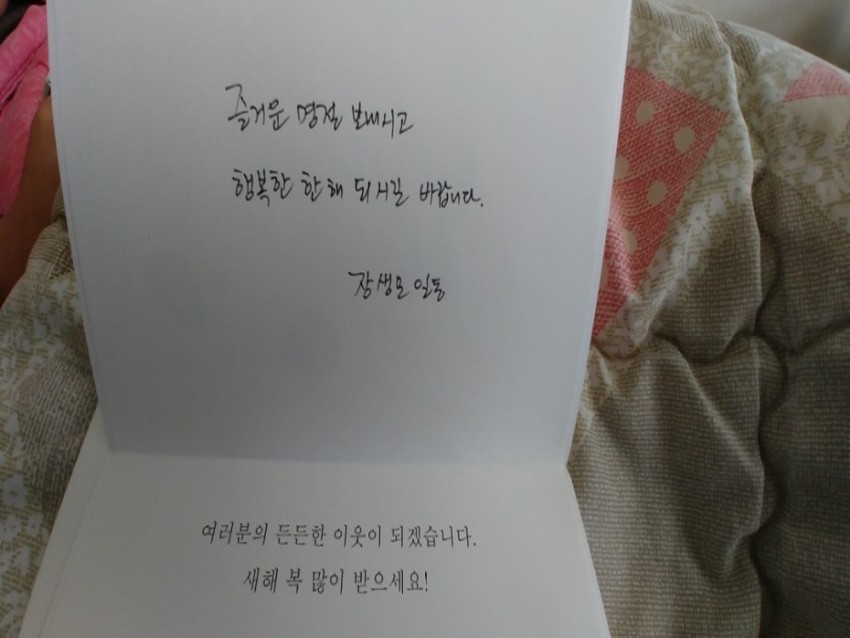 즐거운 명절 보내시고
행복한 한해 되시길 바랍니다.
장생모 일동
여러분의 든든한 이웃이 되겠습니다.
새해 복 많이 받으세요!